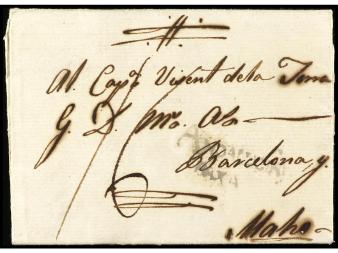 Al Capn. Visent de la Torra
G. D. Ms. As.
Barcelona, y.
Maho